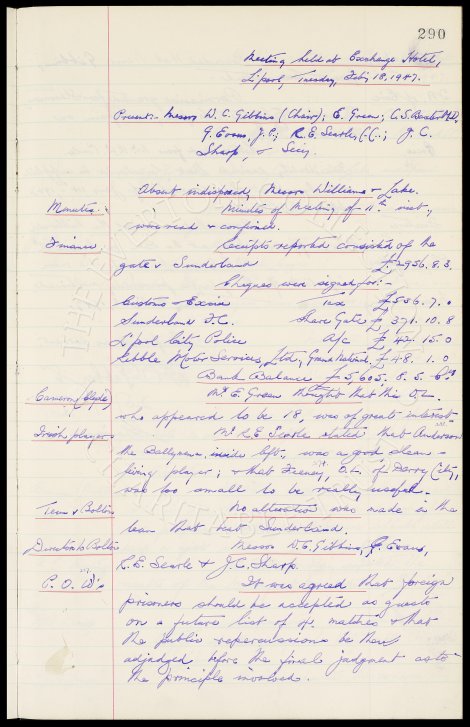 290
Meeting held at Exchange Hotel,
L'pool, Tuesday, Feb'y 18, 1947.
Present. Messrs W. C. Gibbins (Chair); E. Green; C. S. Baxter
G. Evans, J.P.; R. E. Searle, C.C.; J. C.
Sharp, & Secy.
About indisposed, Messrs Williams & Lake.
Minutes. Minutes of Meeting of 11th inst.,
were read & confirmed.
Finance. Receipts reported consisted of the
gate v Sunderland £2956. 8. 3.
Cheques were signed for:-
Customs & Excise Tax £536. 7. 0
Sunderland F.C. Share Gate £371. 10. 8
L'pool City Police A/c £42. 15. 0
Ribble Motor Services, Ltd., £48. 1. 0
Bank Balance £5,605. 8. 5.
Cameron (Clyde) Mr. E. Green thought that this O.L.
who appeared to be 18, was of great interest.
Irish players Mr R. E. Searle stated that Anderson
the Ballymena inside left, was a good clean-
living player; & that O.L. of Derry City,
was too small to be really useful.
Team v Bolton No alteration was made in the
team that beat Sunderland.
Directors to Bolton Messrs W. C. Gibbins, G. Evans,
R. E. Searle & J. C. Sharp.
P. O. W's It was agreed that foreign
prisoners should be accepted as guests
on a future list of matches & that
the public repercussions be then
adjudged, before the final judgment as to
the principle involved.